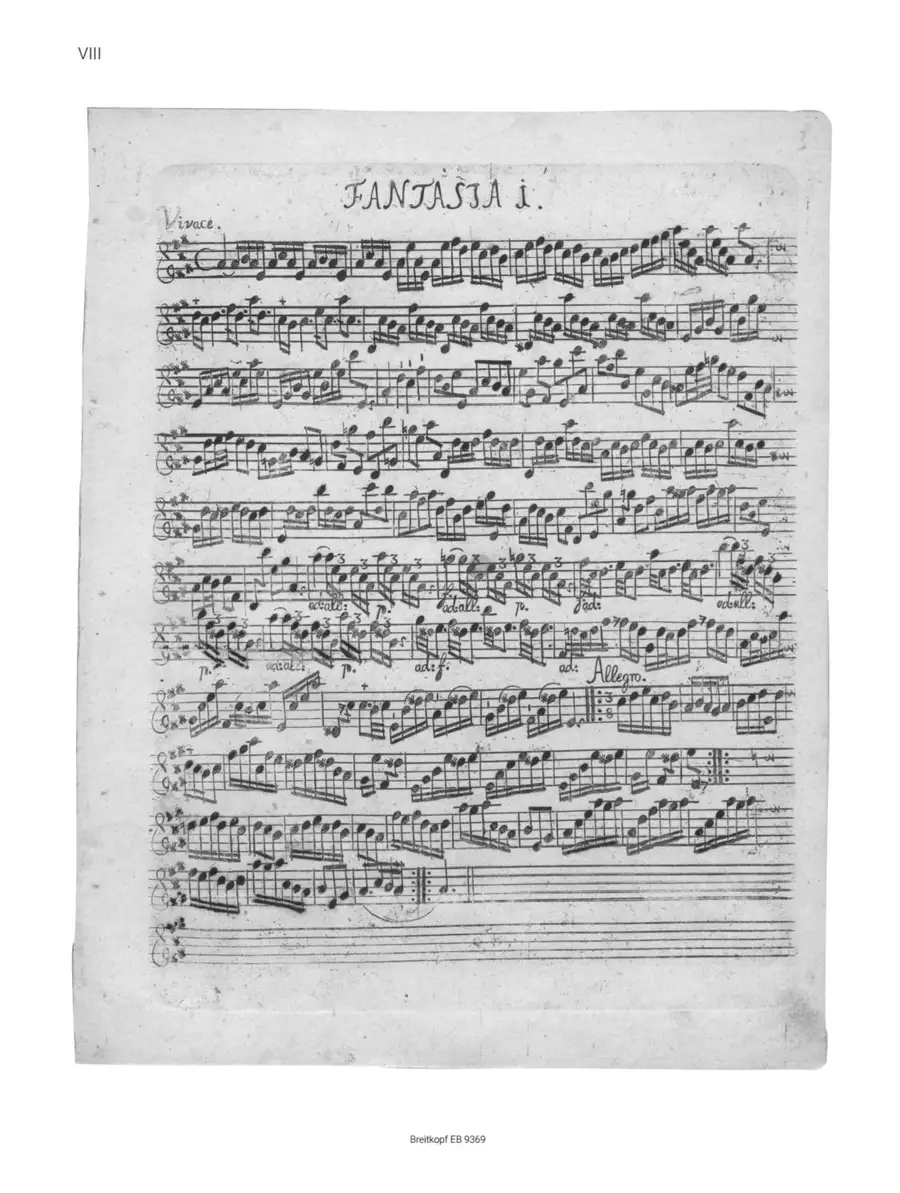 VIII
FANTASIA 1.
Vivace.
3 3 3 3 3 3
ad: all: p. f ad: all: p. f ad: ad: all:
3 3
p. ad: all: p. ad: f. ad: Allegro.
3
8
Breitkopf EB 9369